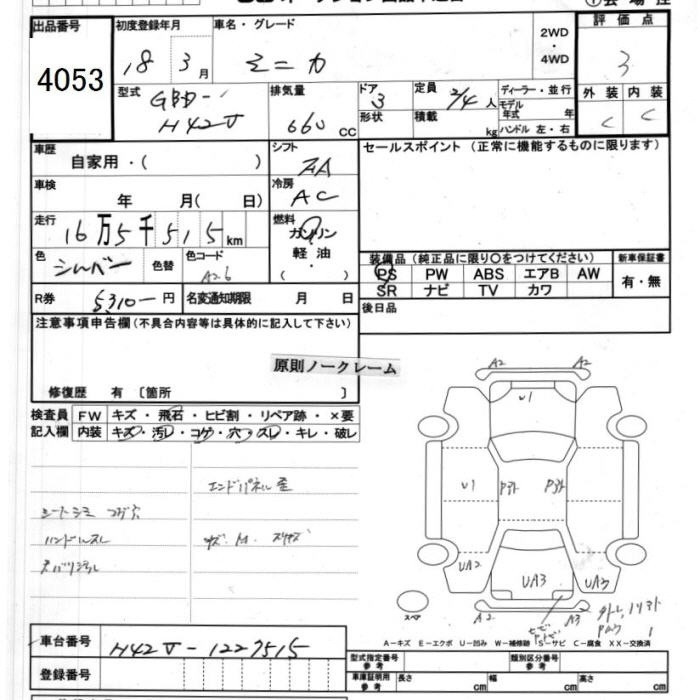 出品番号 初度登録年月 車名・グレード 2WD・4WD 評価点
4053 18 3月 ミニカ 3
型式 GBD- H42V 排気量 660 cc ドア 3 形状 定員 2/4 人 積載 kg ディーラー・並行 モデル年式 年 ハンドル 左・右 外装 C 内装 C
車歴 自家用・( ) シフト FA セールスポイント(正常に機能するものに限ります)
車検 年 月( 日) 冷房 AC
走行 16万5千515km 燃料 ガソリン 軽油・( )
色 シルバー 色替 色コード A26
装備品(純正品に限り○をつけてください) 新車保証書
PS PW ABS エアB AW 有・無
SR ナビ TV カワ
R券 5310-円 名変通知期限 月 日 後日品
注意事項申告欄(不具合内容等は具体的に記入して下さい)
原則ノークレーム
修復歴 有 〔箇所 〕
検査員記入欄 FW キズ・飛石・ヒビ割・リペア跡・×要
内装 キズ・汚レ・コゲ・穴・スレ・キレ・破レ
エンドパネル歪
シートシミ コゲ穴
ハンドルスレ
A2 A2
U1
U1
UA2 UA3 UA3
スペア A2 A3
A-キズ E-エクボ U-凹み W-補修跡 S-サビ C-腐食 XX-交換済
車台番号 H42V-1227515
登録番号
型式指定番号 参考 類別区分番号 参考
車庫証明用 参考 長さ cm 幅 cm 高さ cm